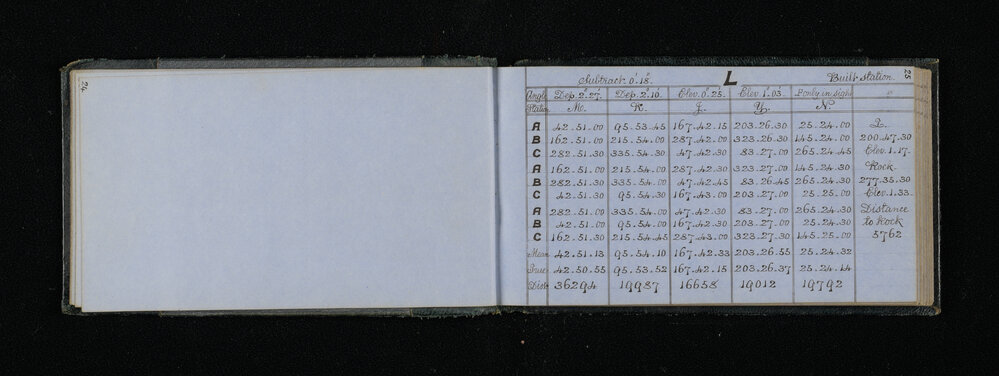 24
23
Subtract 0°.18". L Built station.
Angle Dep. 2°.27'. Dep. 2°.16'. Elev. 0°.25'. Elev 1°.03'. P only in sight
Station M. K. J. Y. N.
A 42.51.00 95.53.45 167.42.15 203.26.30 25.24.00 Q
B 162.51.00 215.54.00 287.42.00 323.26.30 145.24.00 200.47.30
C 282.51.30 335.54.30 47.42.30 83.27.00 265.24.45 Elev.1.17.
A 162.51.00 215.54.00 287.42.30 323.27.00 145.24.30 Rock
B 282.51.30 335.54.00 47.42.45 83.26.45 265.24.30 277.35.30
C 42.51.30 95.54.30 167.43.00 203.27.00 25.25.00 Elev.1.33.
A 282.51.00 335.54.00 47.42.30 83.27.00 265.24.30 Distance
B 42.51.00 95.54.00 167.42.30 203.27.00 25.24.30 to Rock
C 162.51.30 215.54.45 287.43.00 323.27.30 145.25.00 5762
Mean 42.51.13 95.54.10 167.42.33 203.26.55 25.24.32
True 42.50.55 95.53.52 167.42.15 203.26.37 25.24.14
Dist 36294 19987 16658 19012 19792